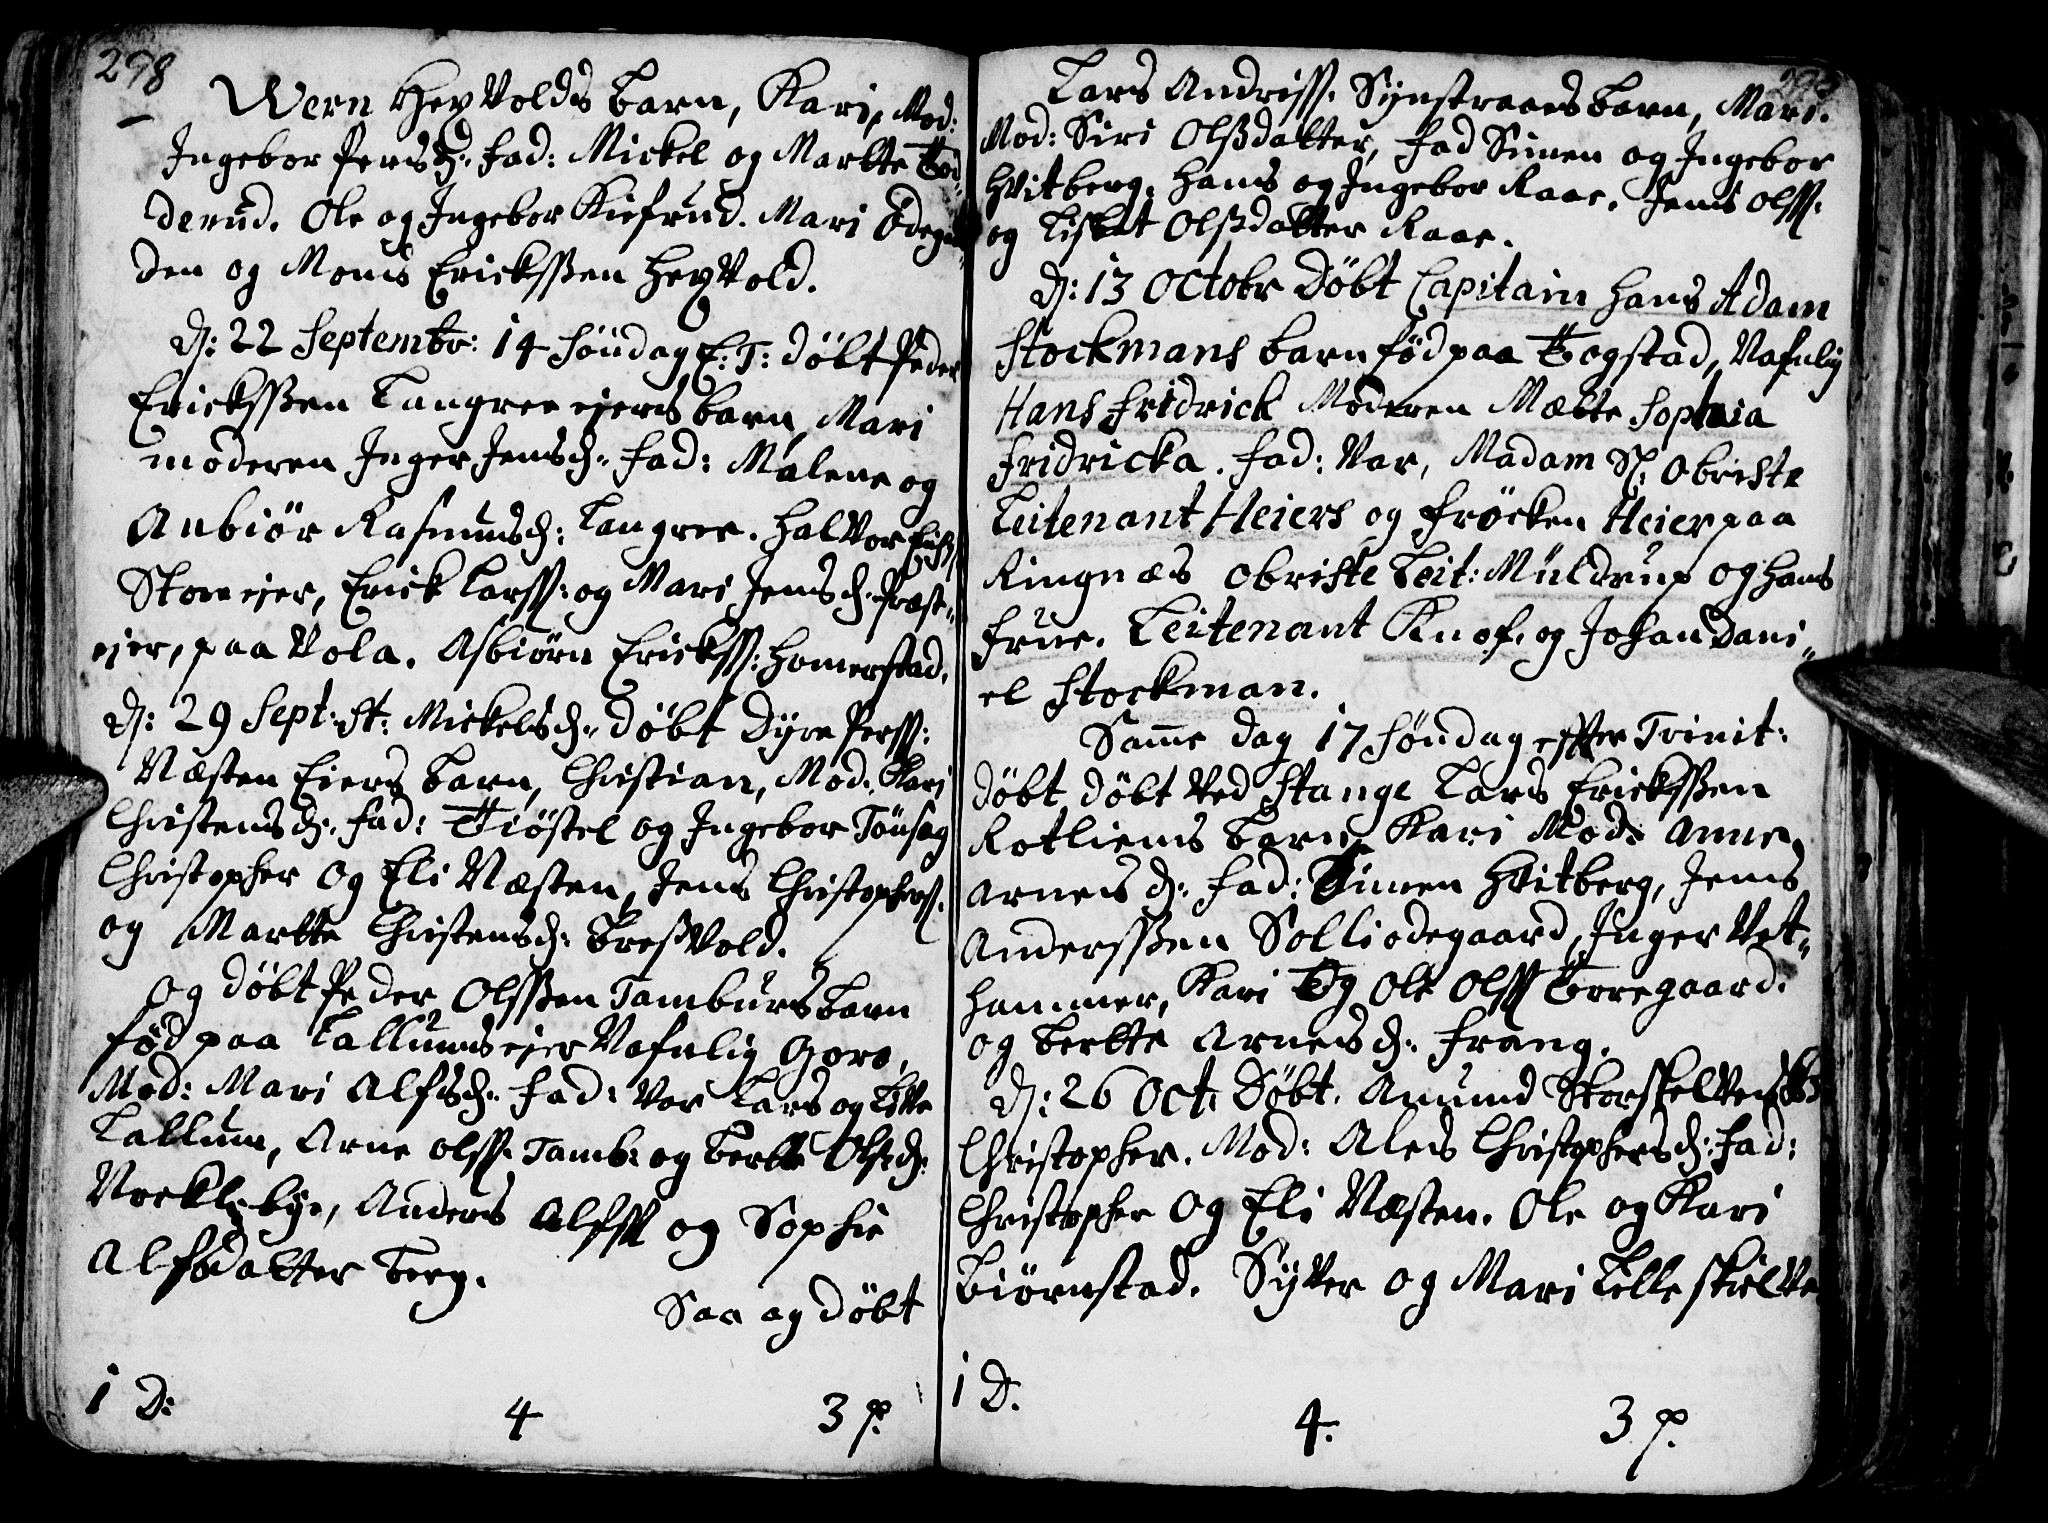 298
Wern Heyvolds barn, Kari, Mod:
Ingebor Persd: fad: Mickel og Marthe
derud. Ole og Ingebor Kiefrud. Mari Ødega-
den og Mons Erickssen Heyvold.
d: 22 Septembr: 14 Søndag E: T: døbt Peder
Erickssen Tangree ejers barn, Mari
moderen Inger Jensd: fad: Malene og
Anbiør Rasmusd: Tangree. Halvor
Stor ejer, Erick Larss: og Mari Jensd: Præst-
ejer, paa Vola. Asbiørn Erickss: Homerstad.
d: 29 Sept: St: Mickelsd: døbt Dyre Perss:
Næsten Eiers barn, Christian, Mod: Kari
Christensd: fad: Tiøstel og Ingebor Tønsag
Christopher og Eli Næsten, Jens Christophers:
og Marthe Christensd: Bressvold.
og døbt Peder Olssen Tamburs barn
fød paa Tallums ejer Nafnlig Goro,
Mod: Mari Alfsd: fad: var Lars og
Tallum, Arne Olss: Tamb: og Berthe Olsd:
Nocklebye, Anders Alfss og Sophie
Alfsdatter Berg.
Saa og døbt
1 D: 4 3 p.
299
Lars Andriss: Synstraaes barn, Mari.
Mod: Siri Olsdatter, fad Simen og Ingebor
Hvitberg. Hans og Ingebor Raae. Jens Olss:
og Lisbet Olsdatter Raae.
d: 13 Octobr Døbt Capitain Hans Adam
Stockmans barn fød paa Togstad, Nafnlig
Hans Fridrick Moderen Mette Sophia
Fridricka. fad: Var, Madam Sl: Obriste
Leitenant Heiers og frøcken Heier paa
Ringnæs Obriste Leit: Müldrup og hans
frue. Leitenant Knof. og Johan Dani-
el Stockman.
Samme dag 17 Søndag efter Trinit:
døbt døbt ved Stange Lars Erickssen
Rotliens barn, Kari Mod: Anne
Arnesd: fad: Simen Hvitberg, Jens
Anderssen Solliødegaard, Inger Vet-
hammer, Kari og Ole Olss Toregaard.
og Berthe Arnesd: Frang.
d: 26 Oct: Døbt. Amund Storskelven
Christopher. Mod: Ales Christophersd: fad:
Christopher og Eli Næsten. Ole og Kari
Biørnstad. Syver og Mari Lille skelve
1 D. 4. 3 p.